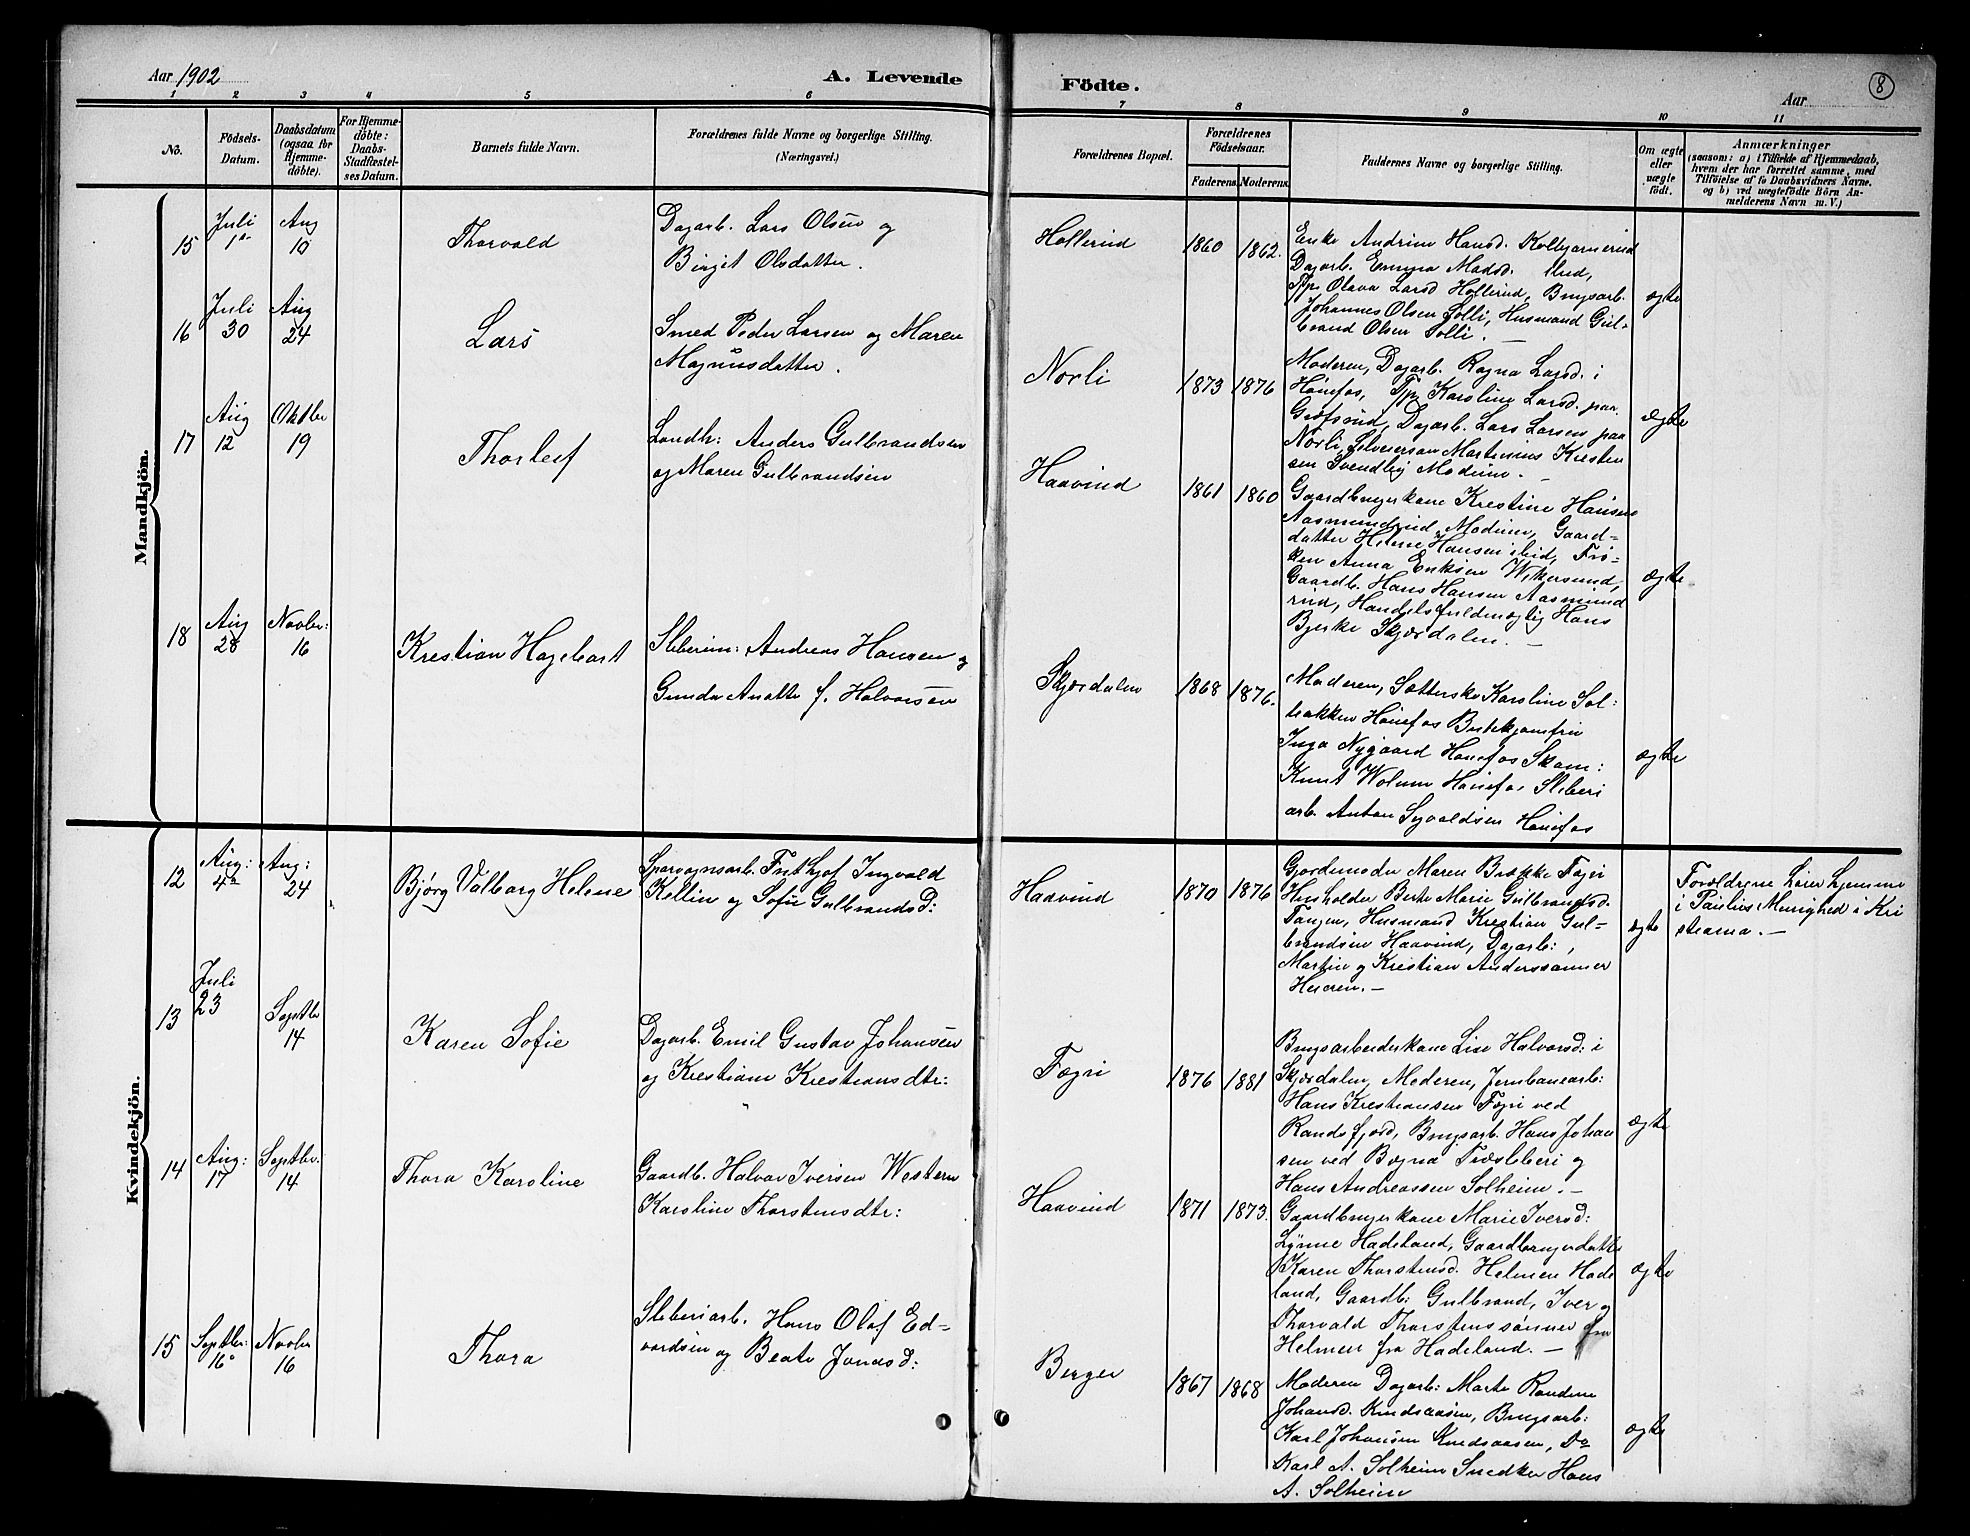 Aar 1902
A. Levende
Födte.
Aar
8
1 2 3 4 5 6 7 8 9 10 11
No.
Födsels-
Datum.
Daabsdatum
(ogsaa for
Hjemme-
döbte).
For Hjemme-
döbte:
Daabs-
Stadfæstel-
ses Datum.
Barnets fulde Navn.
Forældrenes fulde Navne og borgerlige Stilling.
(Næringsvei.)
Forældrenes Bopæl.
Forældrenes
Födselsaar.
Faderens. Moderens.
Faddernes Navne og borgerlige Stilling.
Om ægte
eller
uægte
födt.
Anmærkninger
(saasom: a) i Tilfælde af Hjemmedaab,
hvem der har forrettet samme, med
Tilföielse af to Daabsvidners Navne.
og b) ved uægtefödte Börn An-
melderens Navn m. V.)
Mandkjön.
15
Juli
1ste
Aug
10
Thorvald
Dagarb. Lars Olsen og
Birgit Olsdatter.
Hollerud
1860
1862.
Enke Andrine Hansd. Kolbjørnerud
Dagarb. Emma Madsd. Rud,
Tjp. Olava Larsd Hollerud, Brugsarb.
Johannes Olsen Solli, Husmand Gul-
brand Olsen Solli. —
ægte
16
Juli
30
Aug
24
Lars
Smed Peder Larsen og Maren
Magnusdatter.
Norli
1873
1876
Moderen, Dagarb. Ragna Larsd. i
Hønefos, Tjp Karoline Larsd. paa
Dagarb. Lars Larsen paa
Norli, Martinius Kresten
sen Svendby Modum. —
ægte
17
Aug
12
Oktbr
19
Thorleif
Landh: Anders Gulbrandsen
og Maren Gulbrandsen
Haavind
1861
1860
Gaardbrugerkone Krestine Hansen
Aasmundrud, Modum, Gaard-
datter Helene Hansen ibid, Frø-
ken Anna Eriksen Wikersund,
Gaardb. Hans Hansen Aasmund
rud, Handelsfuldmægtig Hans
Bjerke Skjærdalen. —
ægte
18
Aug
28
Novbr:
16
Krestian Hagebart
Sleberim: Andreas Hansen og
Gunda Anette f. Halvorsen
Skjærdalen
1868
1876.
Moderen, Sætterske Karoline Sol:
bakken Hønefos Butikjomfru
Inga Nygaard Hønefos Skom:
Knut Wolum Hønefos Sleberi
arb. Anton Syvaldsen Hønefos
ægte
Kvindekjön.
12
Aug:
4de
Aug:
24
Bjørg Valborg Helene
Sporvognsarb. Frithjof Ingvald
Kellin og Sofie Gulbrandsd:
Haavind
1870
1876
Gjordemoder Maren Bakke Fægri
Husholder Berte Marie Gulbrandsd.
Tangen, Husmand Krestian Gul-
brandsen Haavind, Dagarb:,
Martin og Krestian Anderssønner
Hueren. —
ægte
Forældrene hører hjemme
i Paulus Menighed i Kri
stiania. —
13
Juli
23
Septbr
14
Karen Sofie
Dagarb. Emil Gustav Johansen
og Krestiane Krestiansdtr:
Fægri
1876
1881
Brugsarbeiderkone Lise Halvorsd: i
Skjærdalen, Moderen, Jernbanearb:
Hans Krestiansen Fægri ved
Randsfjord, Brugsarb. Hans Johan
sen ved Bægna Træsleberi og
Hans Andreassen Solheim. —
ægte
14
Aug:
17
Septbr.
14
Thora Karoline
Gaardb. Halvor Iversen Western
Karoline Thorstensdtr:
Haavind
1871
1873.
Gaardbrugerkone Marie Iversd:
Lynne Hadeland, Gaardbrugerdatter
Karen Thorstensd. Helmen Hade
land, Gaardb: Gulbrand, Iver og
Thorvald Thorstenssønner fra
Helmen fra Hadeland. —
ægte
15
Septbr:
16
Novbr
16
Thora
Sleberiarb. Hans Olaf Ed-
vardsen og Beate Jonasd:
Berger
1867
1868
Moderen Dagarb: Marte Randine
Johansd. Knudsaasen, Brugsarb:
Karl Johansen Knudsaasen, Do
Karl A. Solheim Snedker Hans
A. Solheim
ægte